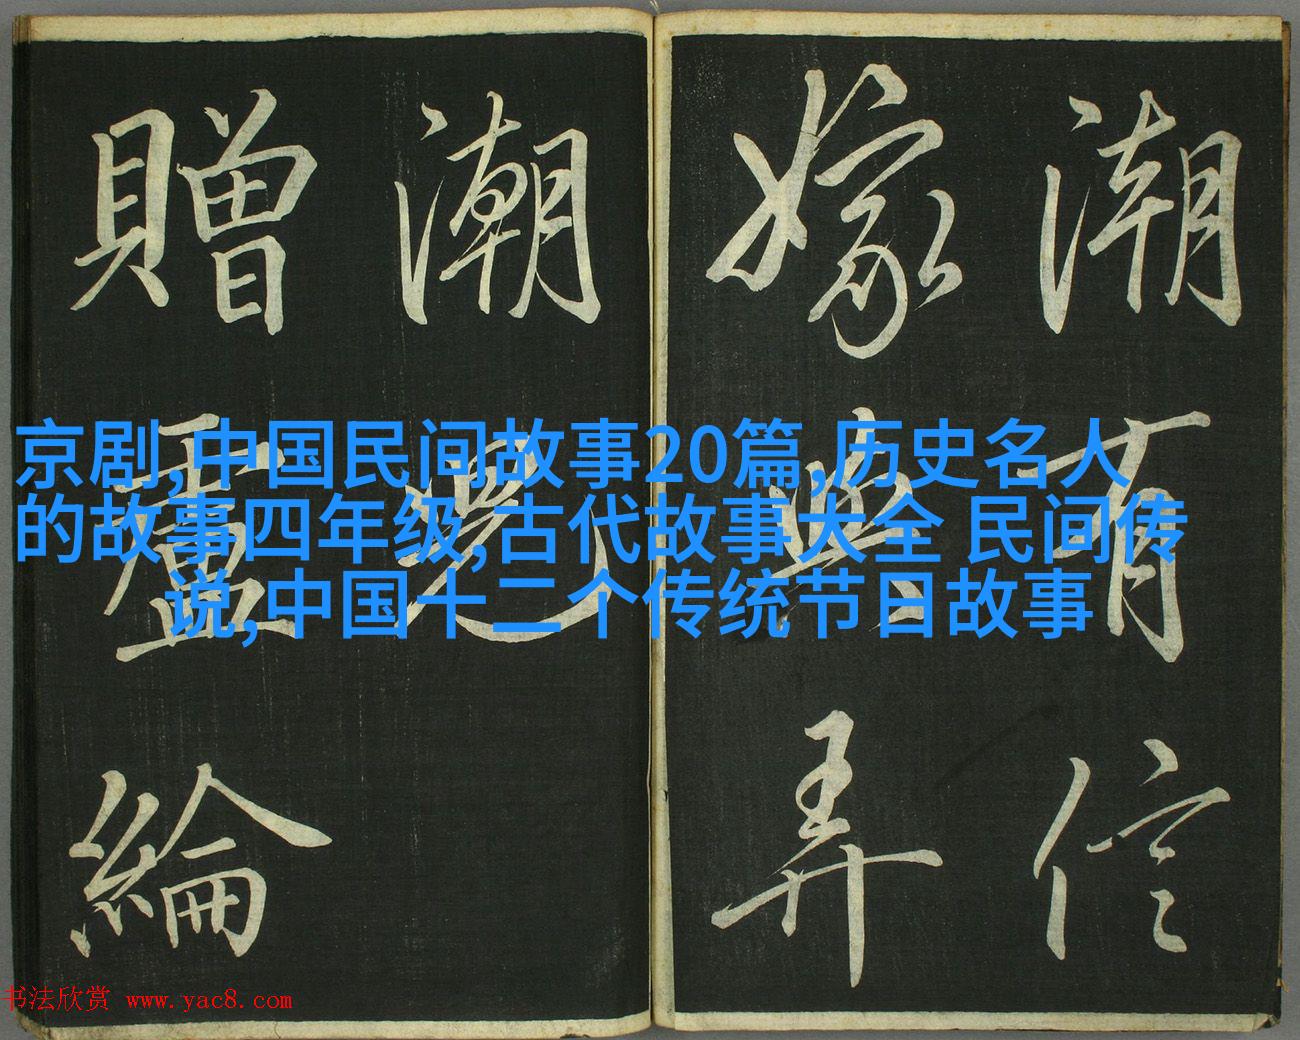 潮有信
嫁與弄
潮兒
贈盧綸
京剧,中国民间故事20篇,历史名人
的故事四年级,古代故事大全 民间传
说,中国十二个传统节日故事
书法欣赏 www.yac8.com